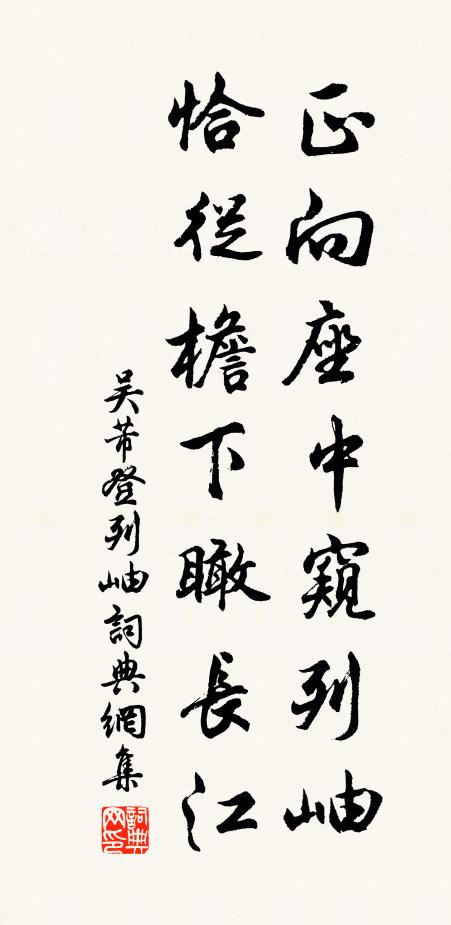 正向座中窺列岫
恰從檐下瞰長江
吴芾登列岫詞典網集
詞典網印